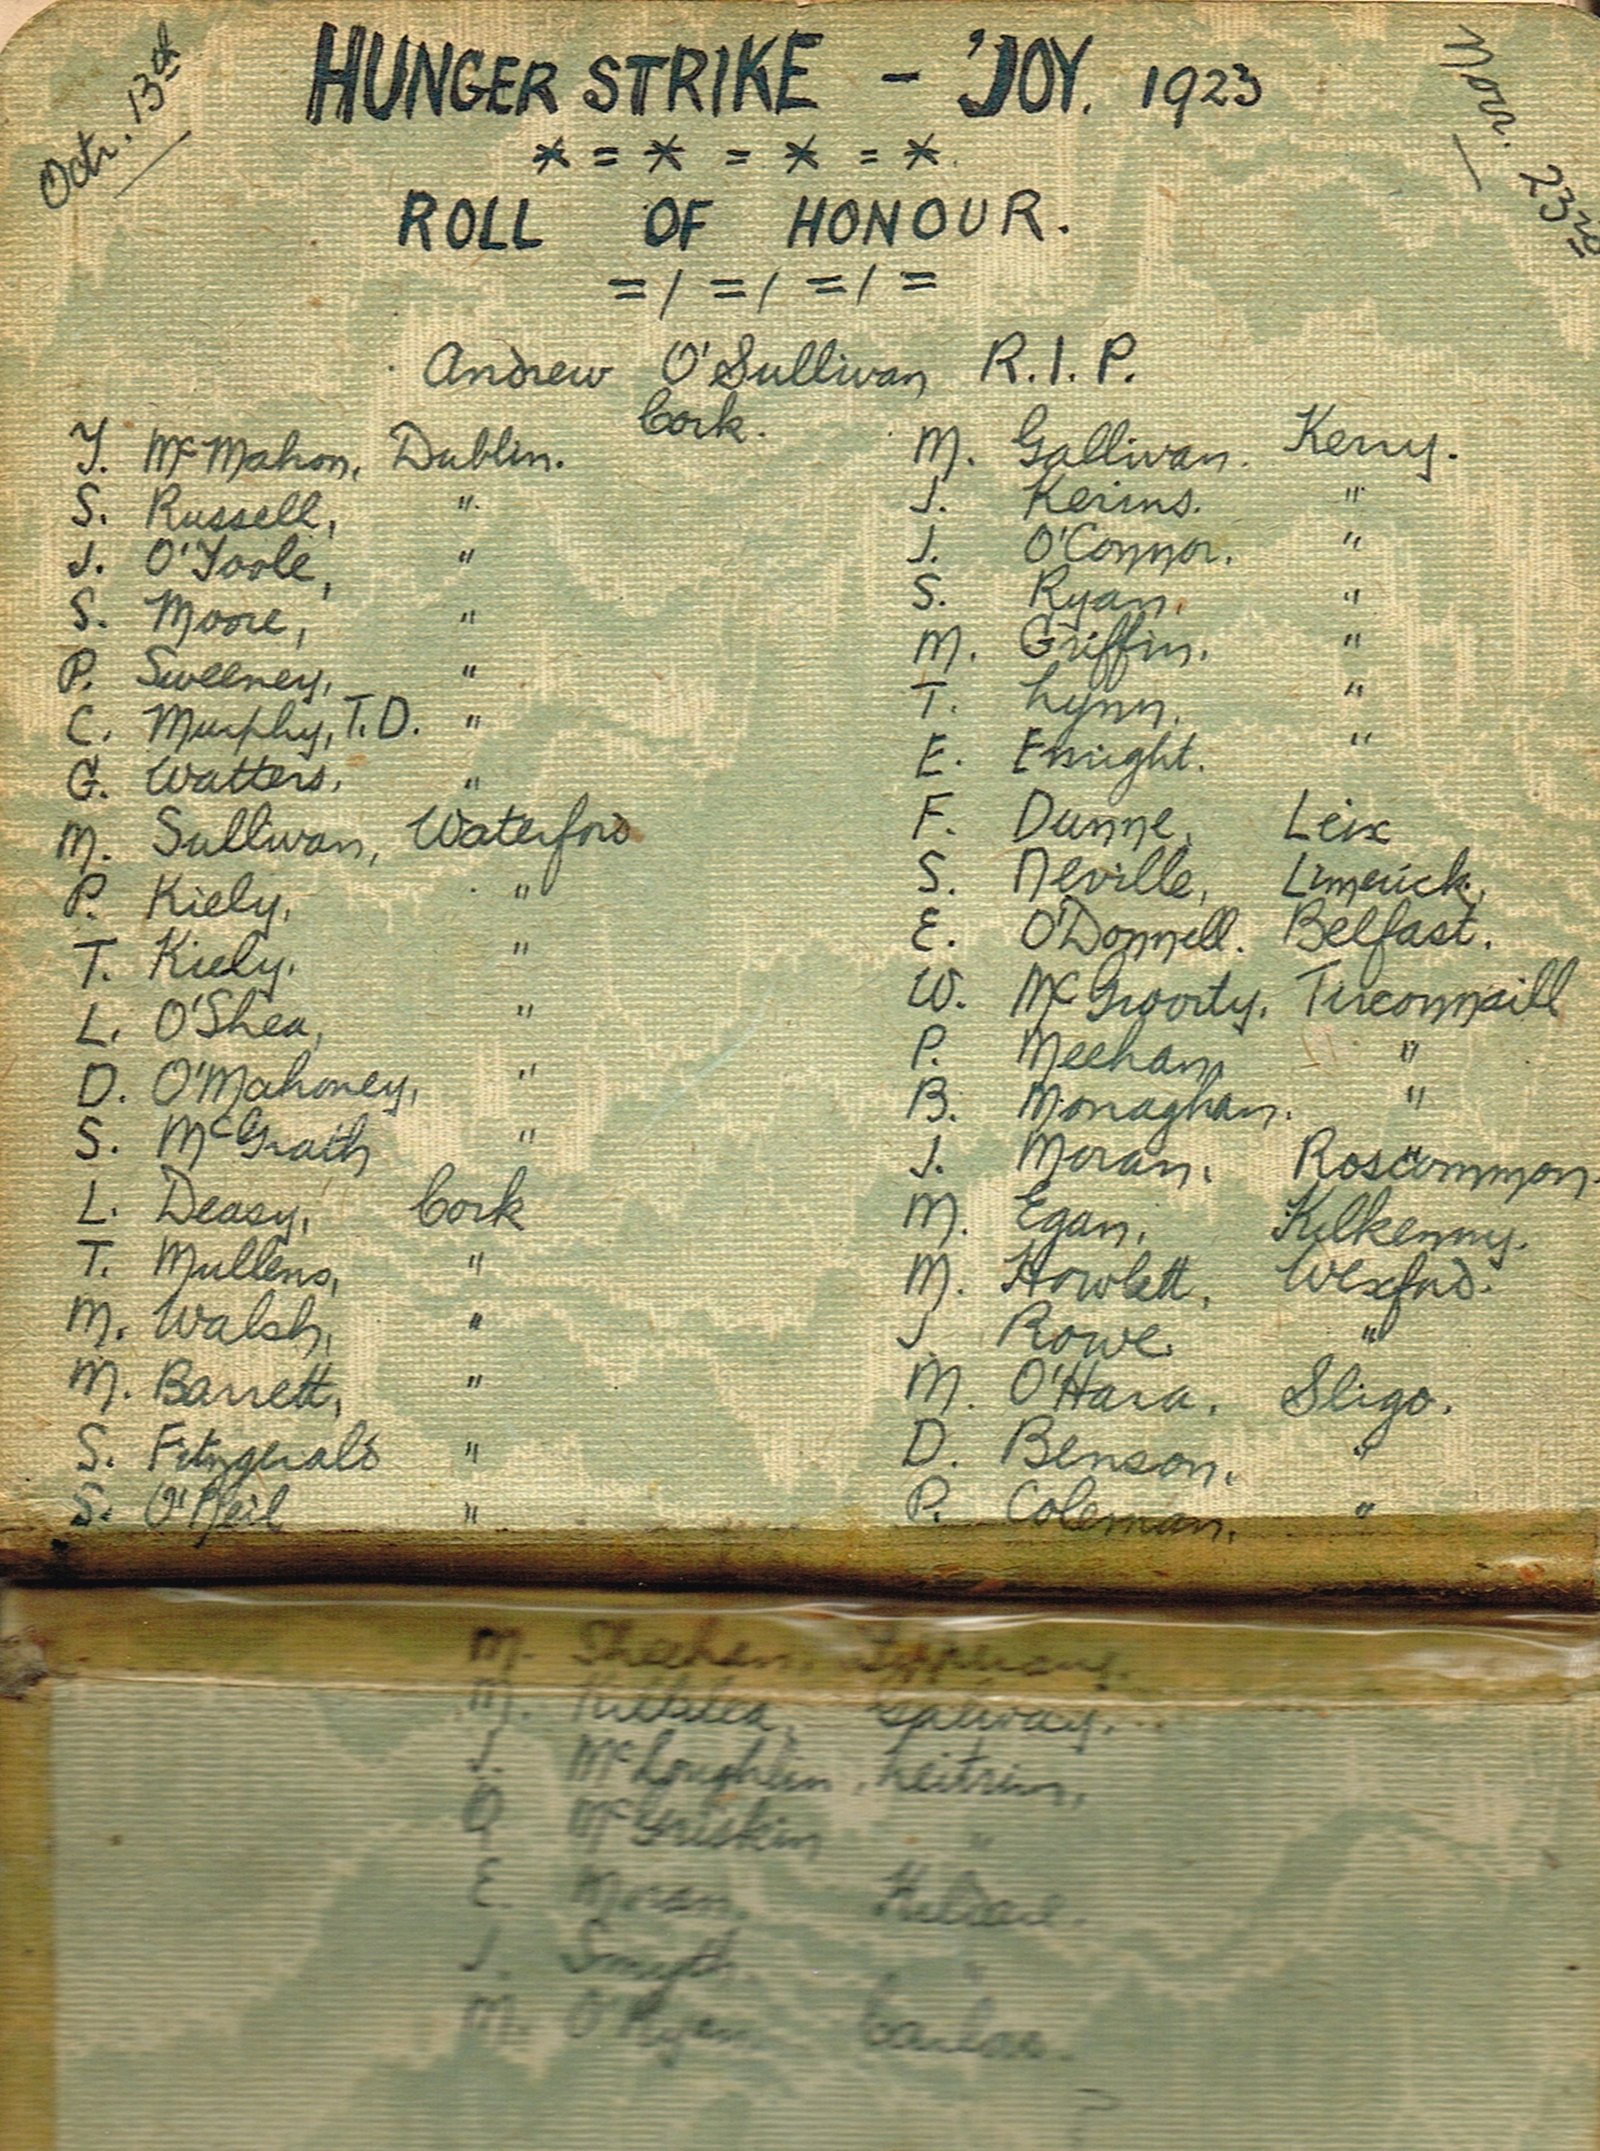 Octr. 13th
HUNGER STRIKE - 'JOY. 1923
Novr. 23rd
* = * = * = *
ROLL OF HONOUR.
= / = / = / =
Andrew O'Sullivan R.I.P.
Cork.
T. McMahon, Dublin.
S. Russell, "
J. O'Toole, "
S. Moore, "
P. Sweeney, "
C. Murphy, T.D. "
G. Watters, "
M. Sullivan, Waterford
P. Kiely, "
T. Kiely, "
L. O'Shea, "
D. O'Mahoney, "
S. McGrath "
L. Deasy, Cork
T. Mullens, "
M. Walsh, "
M. Barrett, "
S. Fitzgerald "
S. O'Neil "
M. Gallivan. Kerry.
J. Kerins. "
J. O'Connor. "
S. Ryan, "
M. Griffin. "
T. Lynn. "
E. Enright. "
F. Dunne, Leix
S. Neville, Limerick,
E. O'Donnell. Belfast.
W. McGroorty. Tirconnaill
P. Meehan, "
B. Monaghan. "
J. Moran. Roscommon.
M. Egan, Kilkenny.
M. Howlett, Wexford.
J Rowe. "
M. O'Hara, Sligo.
D. Benson, "
P. Coleman, "
M. Sheehan, Tipperary.
M. Kilblea, Galway.
J. McLoughlin, Leitrim,
McGriskin "
E. Moran, Kildare.
J. Smyth. "
M. O'Ryan Carlow.